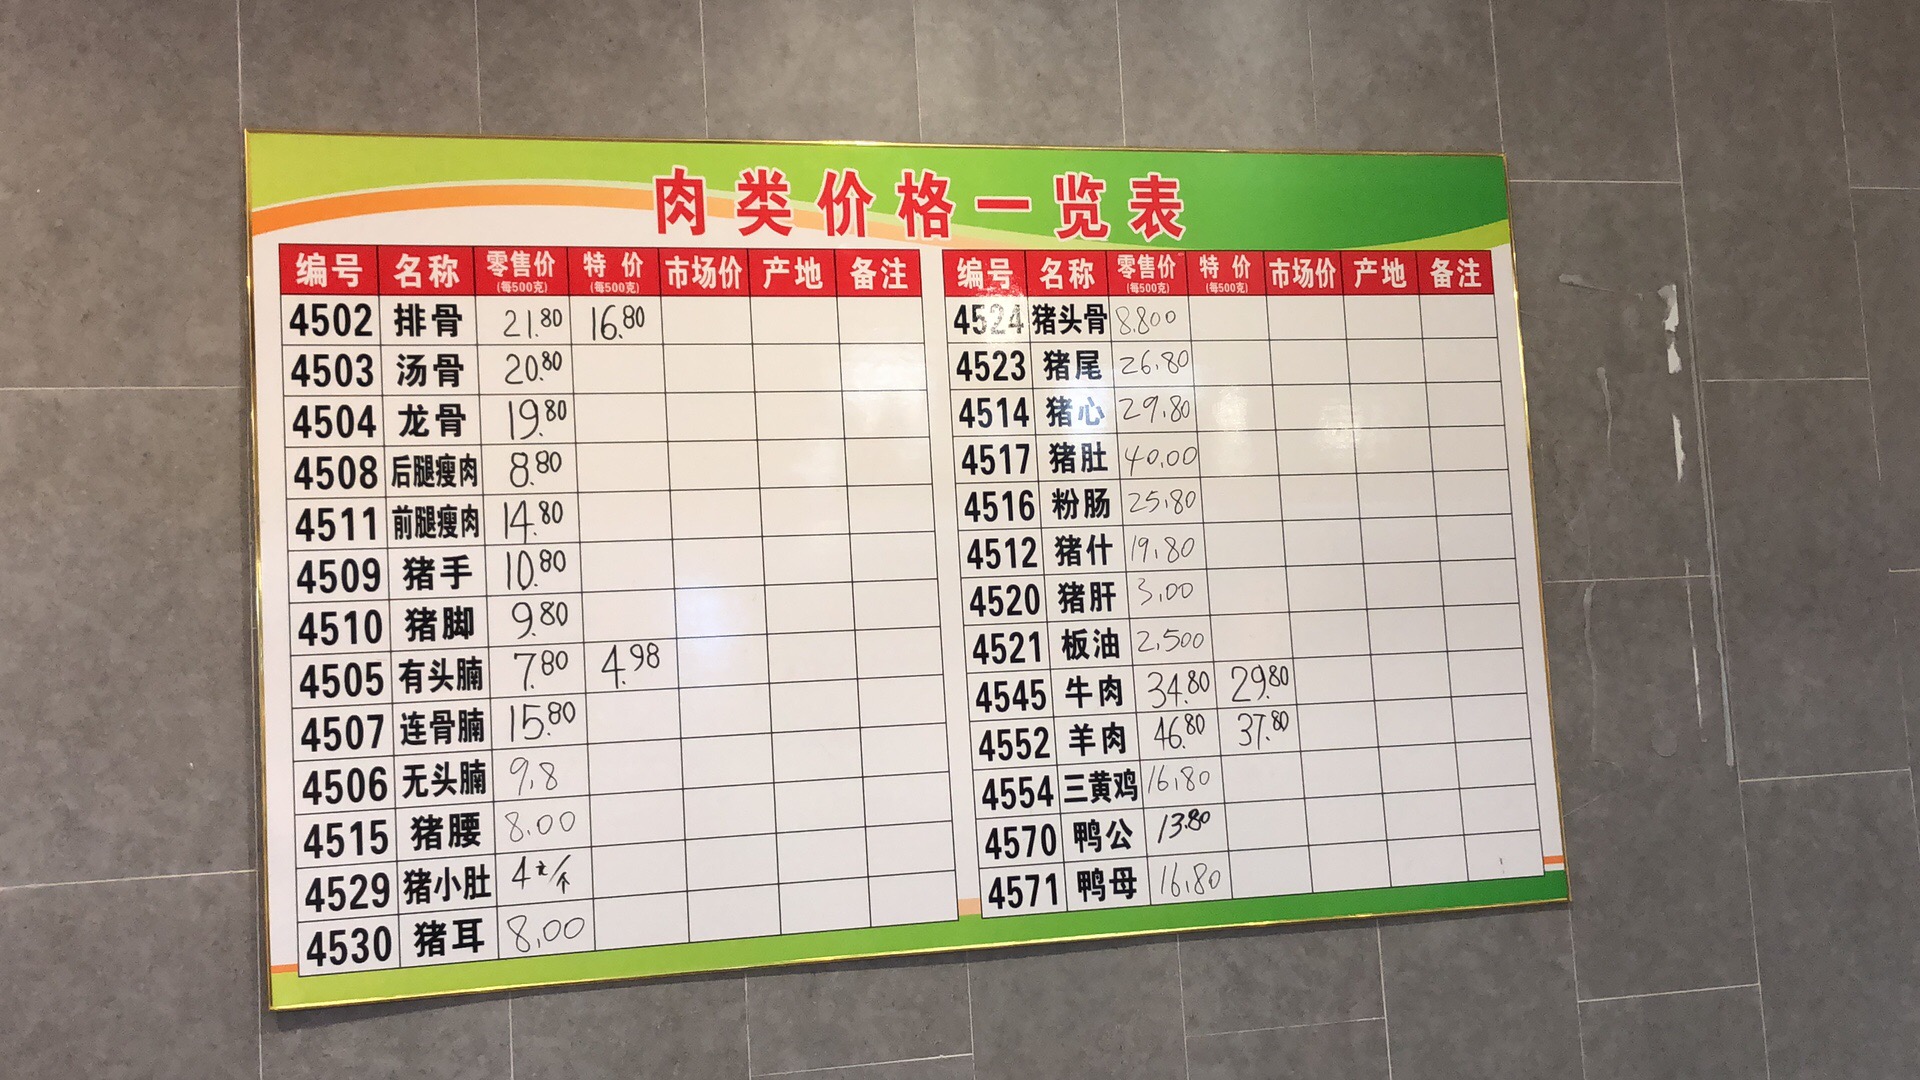 肉类价格一览表
编号 名称 零售价(每500克) 特价(每500克) 市场价 产地 备注
4502 排骨 21.80 16.80
4503 汤骨 20.80
4504 龙骨 19.80
4508 后腿瘦肉 8.80
4511 前腿瘦肉 14.80
4509 猪手 10.80
4510 猪脚 9.80
4505 有头腩 7.80 4.98
4507 连骨腩 15.80
4506 无头腩 9.8
4515 猪腰 8.00
4529 猪小肚 4元/个
4530 猪耳 8.00
编号 名称 零售价(每500克) 特价(每500克) 市场价 产地 备注
4524 猪头骨 8.800
4523 猪尾 26.80
4514 猪心 29.80
4517 猪肚 40.00
4516 粉肠 25.80
4512 猪什 19.80
4520 猪肝 3.00
4521 板油 2.500
4545 牛肉 34.80 29.80
4552 羊肉 46.80 37.80
4554 三黄鸡 16.80
4570 鸭公 13.80
4571 鸭母 16.80